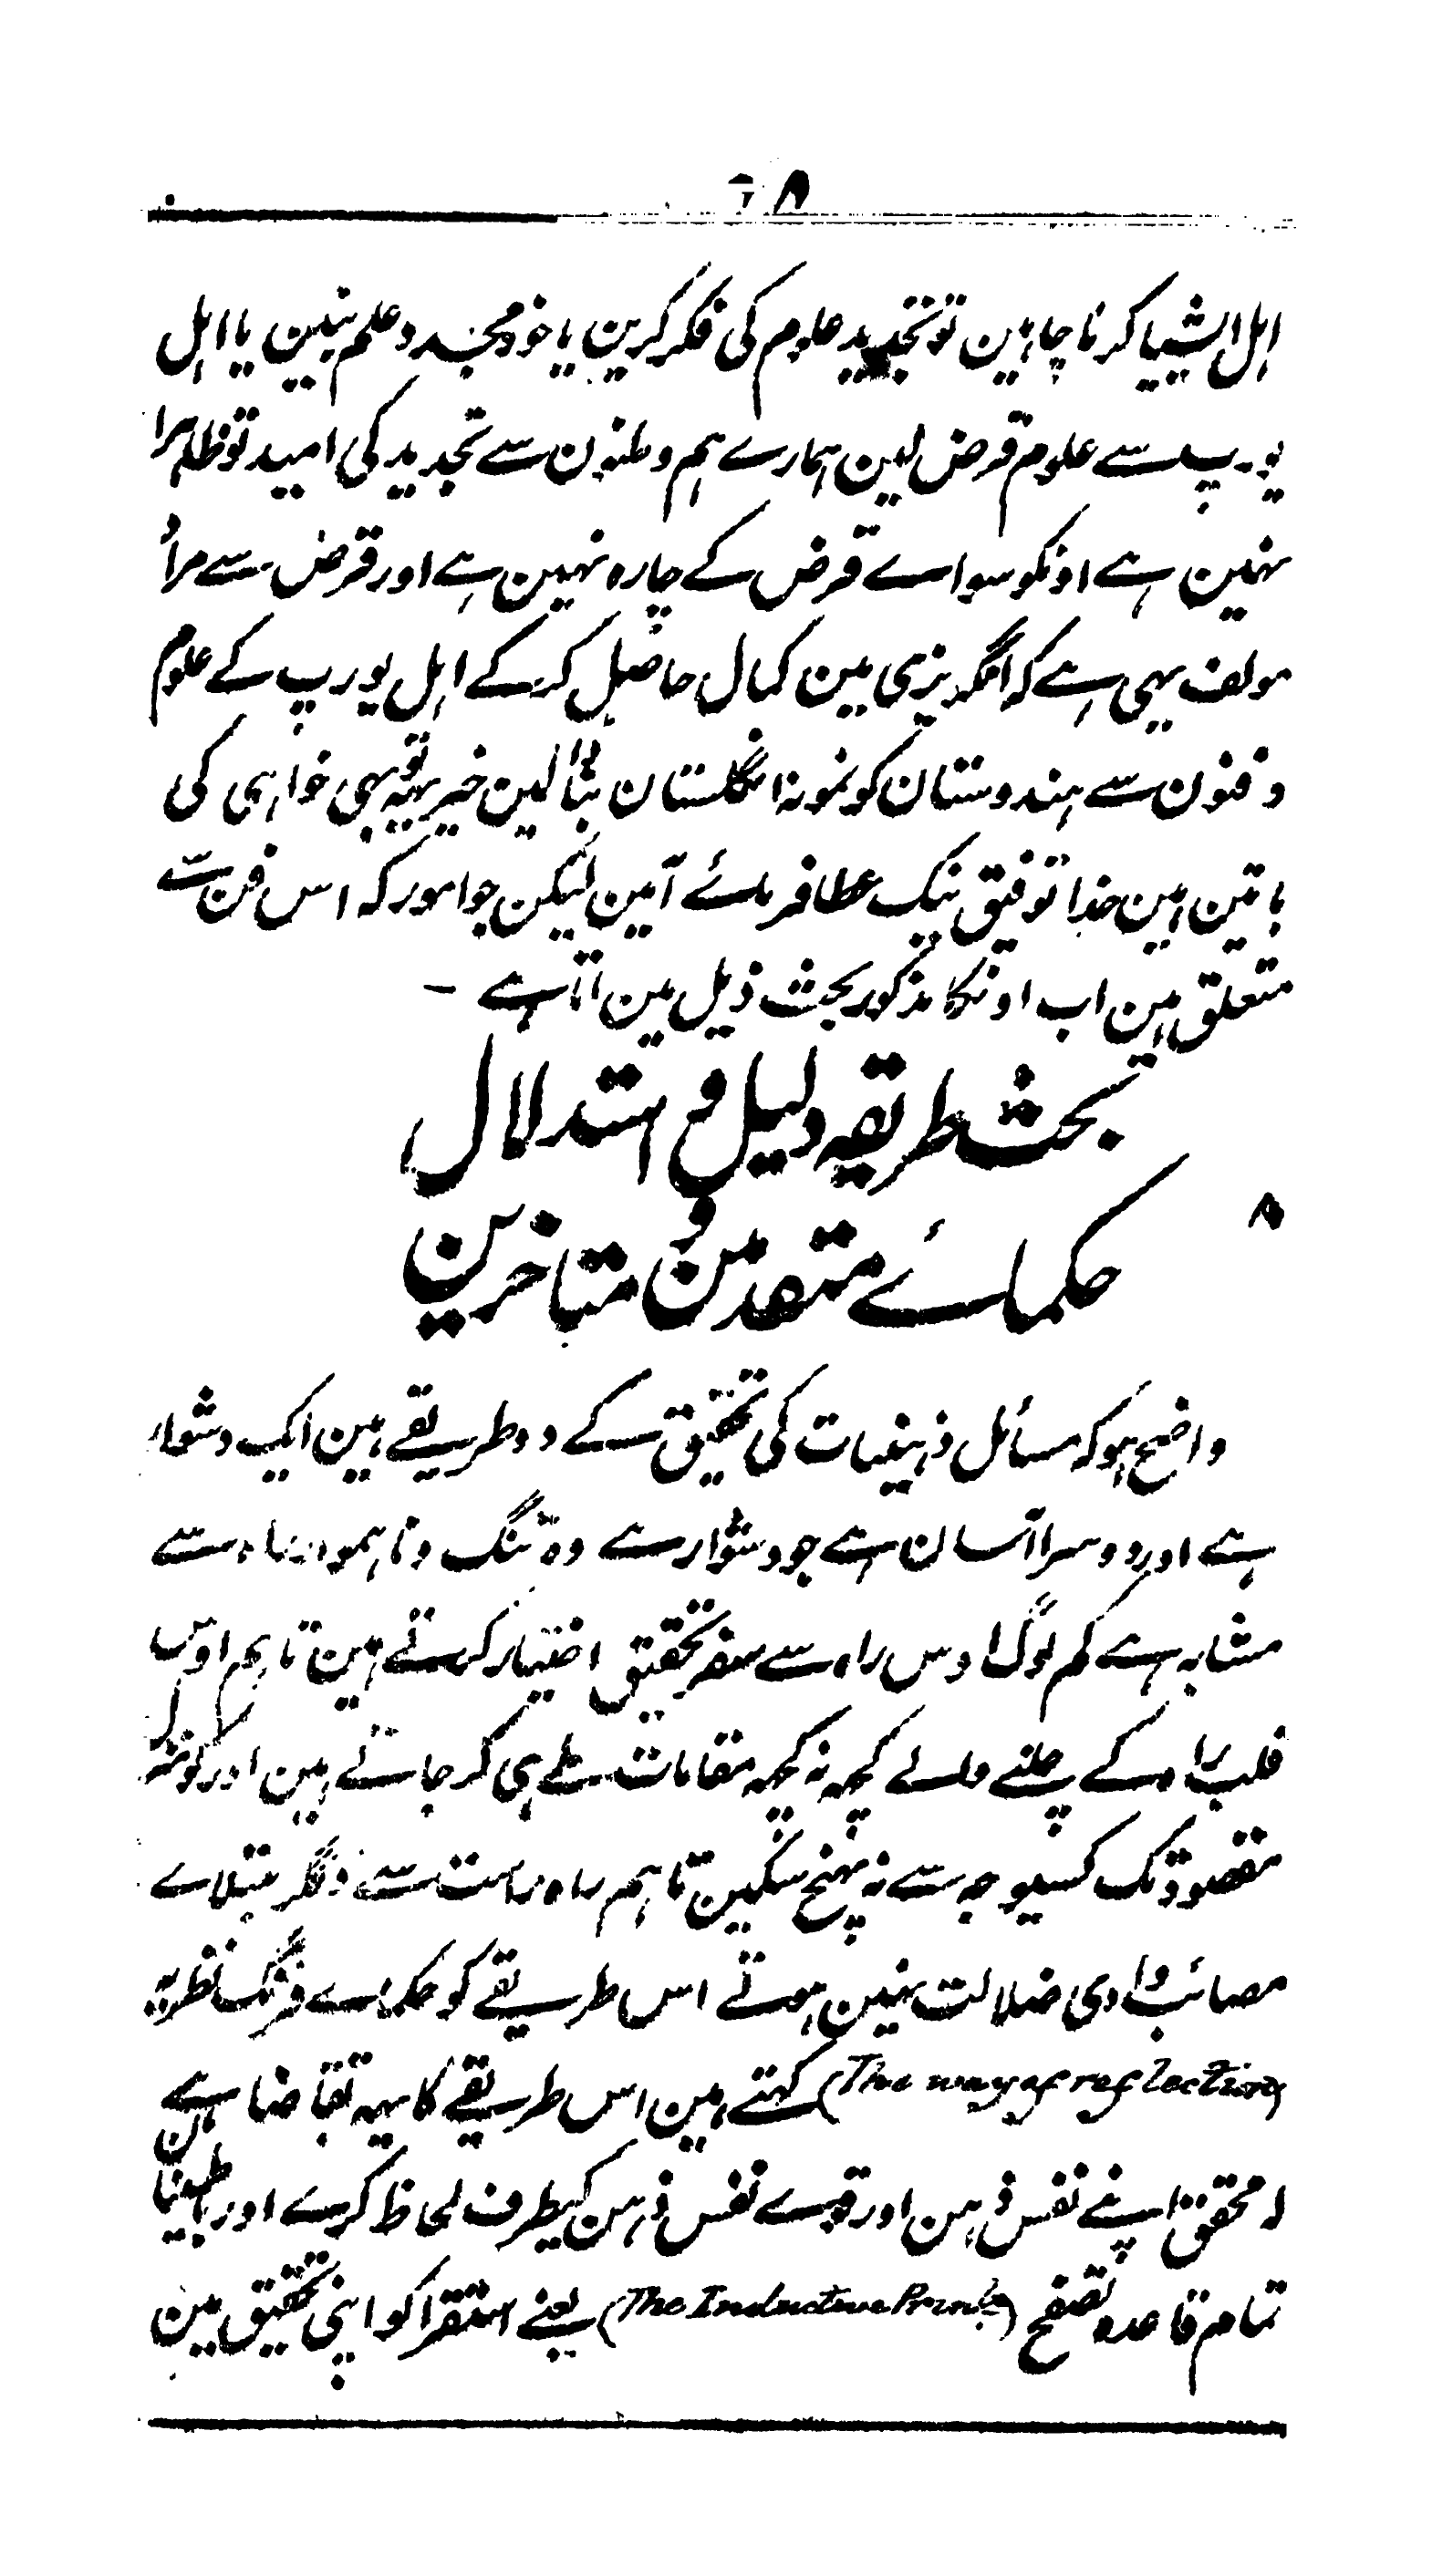 اہل ایشیا کرنا چاہین تو تجدید علوم کی فکر کرین یا خود مجدد علم بنین یا اہل
یورپ سے علوم قرض لین ہمارے ہم وطنون سے تجدید کی امید تو ظاہرا
نہین ہے اونکو سواے قرض کے چارہ نہین ہے اور قرض سے مراد
مولف یہی ہے کہ انگریزی مین کمال حاصل کرکے اہل یورپ کے علوم
و فنون سے ہندوستان کو نمونہ انگلستان بنا لین خیر یہہ تو بہی خواہی کی
باتین ہین خدا توفیق نیک عطا فرمائے آمین لیکن جو امور کہ اس فن سے
متعلق ہین اب اونکا مذکور بحث ذیل مین آتا ہے -
بحث طریقہ دلیل و استدلال
۸
حکمائے متقدمین و متاخرین
واضح ہو کہ مسائل ذہنیات کی تحقیق کے دو طریقے ہین ایک دشوار
ہے اور دوسرا آسان ہے جو دشوار ہے وہ تنگ و ناہموار راہ سے
مشابہ ہے کم لوگ اوس راہ سے سفر تحقیق اختیار کرتے ہین تاہم اوس
راہ کے چلنے والے کچہہ نہ کچہہ مقامات طے ہی کر جاتے ہین اور گو
مقصود تک کسیوجہ سے نہ پہنچ سکین تاہم راہ راست سے مبتلاے
مصائب وادی ضلالت نہین ہوتے اس طریقے کو حکماے فرنگ نظریہ
(The way of reflection) کہتے ہین اس طریقے کا یہہ تقاضا ہے
محقق اپنے نفس ذہن اور قواے نفس ذہن کیطرف لحاظ کرے اور باطینان
تمام قاعدہ تصفح (The Inductive) یعنے استقرا کو اپنی تحقیق مین